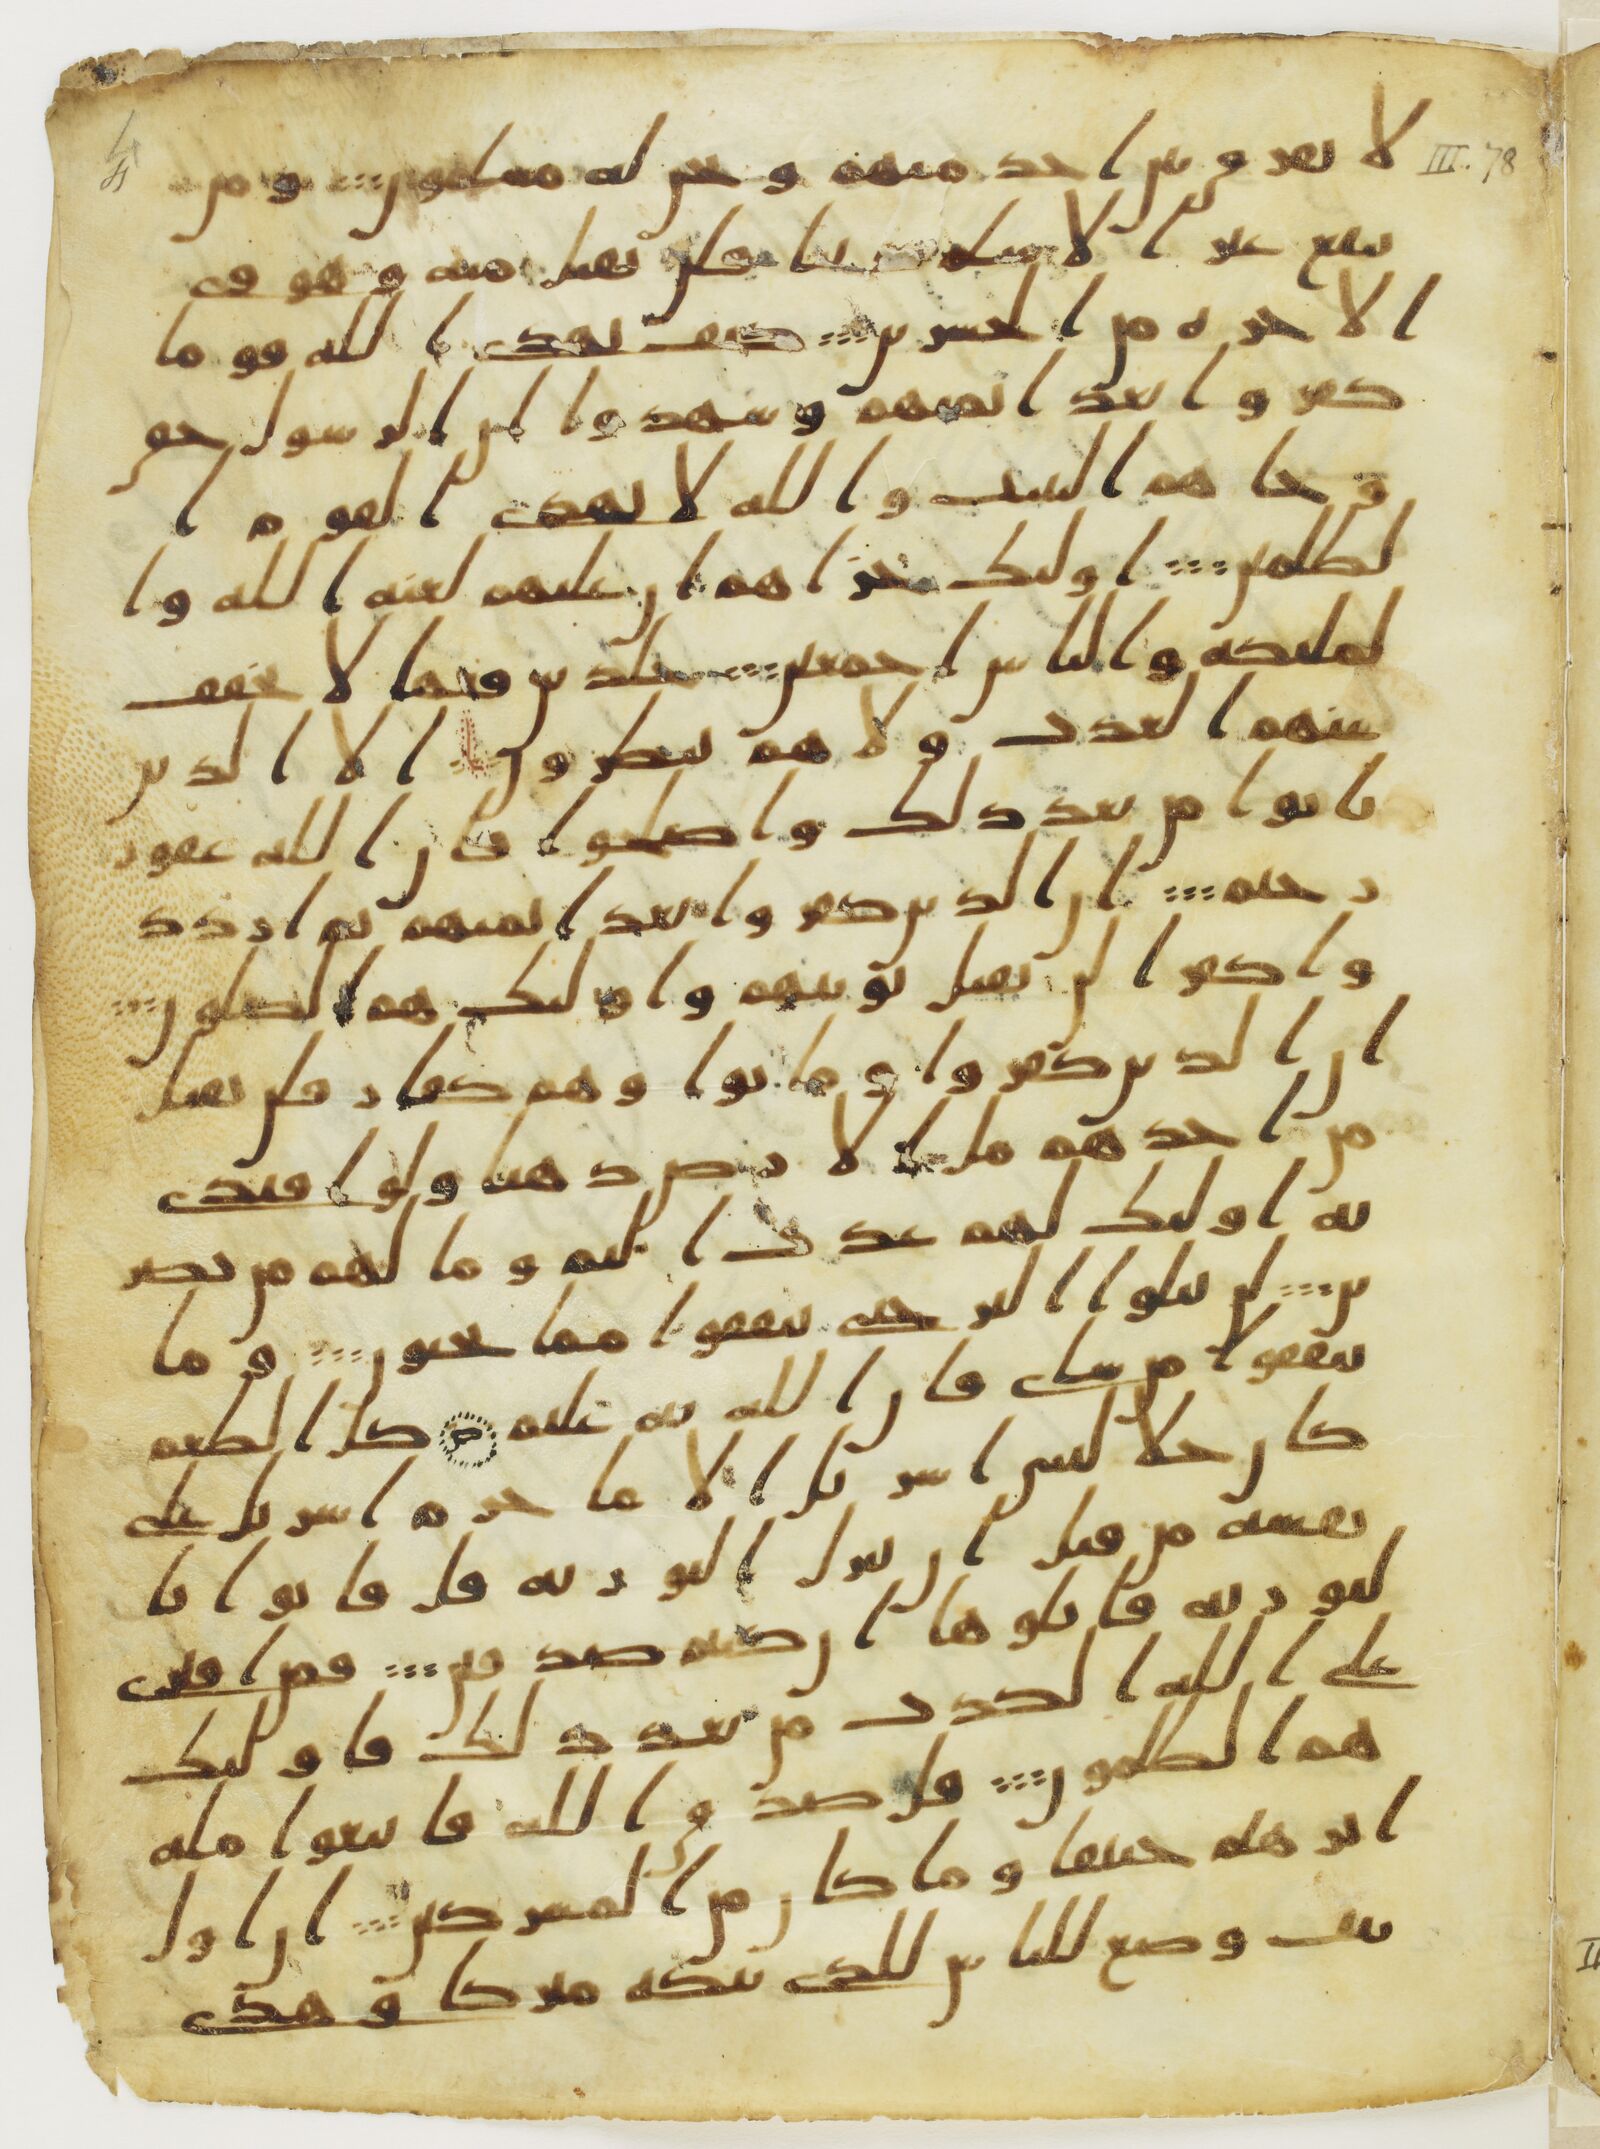 لا نفرق بين احد منهم و نحن له مسلمون ؞ و من III. 78
يبتغ غير الاسلم دينا فلن يقبل منه و هو في
الاخرة من الخسرين ؞ كيف يهدي الله قوما
كفروا بعد ايمنهم و شهدوا ان الرسول حق
و جاهم البينت و الله لا يهدي القوم ا
لظلمين ؞ اوليك جزاهم ان عليهم لعنه الله وا
لمليكه والناس اجمعين ؞ خلدين فيها لا يخفف
عنهم العذب و لا هم ينظرون ؞ الا الذين
تابوا من بعد ذلك و اصلحوا فان الله غفور
رحيم ؞ ان الذين كفروا بعد ايمنهم ثم ازدد
وا كفرا لن تقبل توبتهم و اوليك هم الضلون ؞
ان الذين كفروا و ماتوا و هم كفار فلن يقبل
من احدهم مل الارض ذهبا ولو افتدي
به اوليك لهم عذب اليم و ما لهم من نصر
ين ؞ لن تنلوا البر حتي تنفقوا مما تحبون ؞ و ما
تنفقوا من شاي فان الله به عليم كل الطعم
كان حلا لبني اسريل الا ما حرم اسريل علي
نفسه من قبل ان تنزل التوريه قل فاتوا با
لتوريه فاتلوها ان كنتم صدقين ؞ فمن افتري
علي الله الكذب من بعد ذلك فاوليك
هم الظلمون ؞ قل صدق الله فاتبعوا مله
ابرهيم حنيفا و ما كان من المشركين ؞ ان اول
بيت وضع للناس للذي ببكه مبركا و هدي